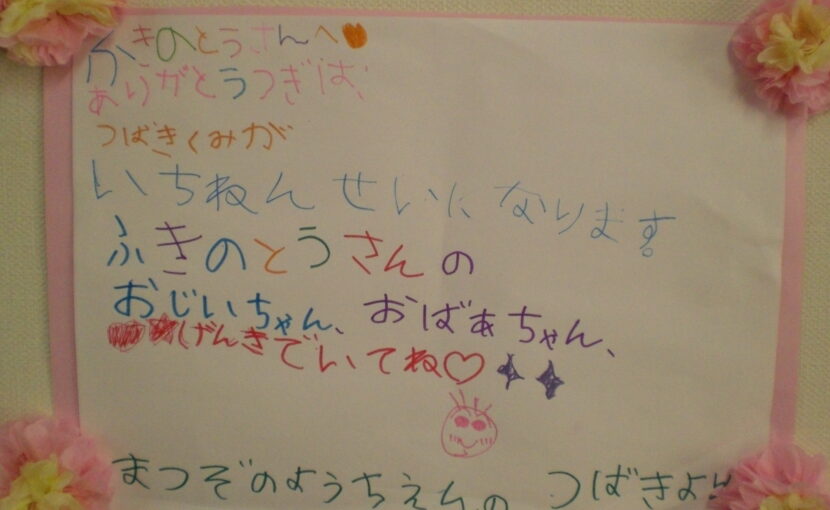 ふきのとうさんへ
ありがとうつぎは、
つばきくみが
いちねんせいになります。
ふきのとうさんの
おじいちゃん、おばあちゃん、
げんきでいてね♡
まつぞのようちえんの つばきより!!